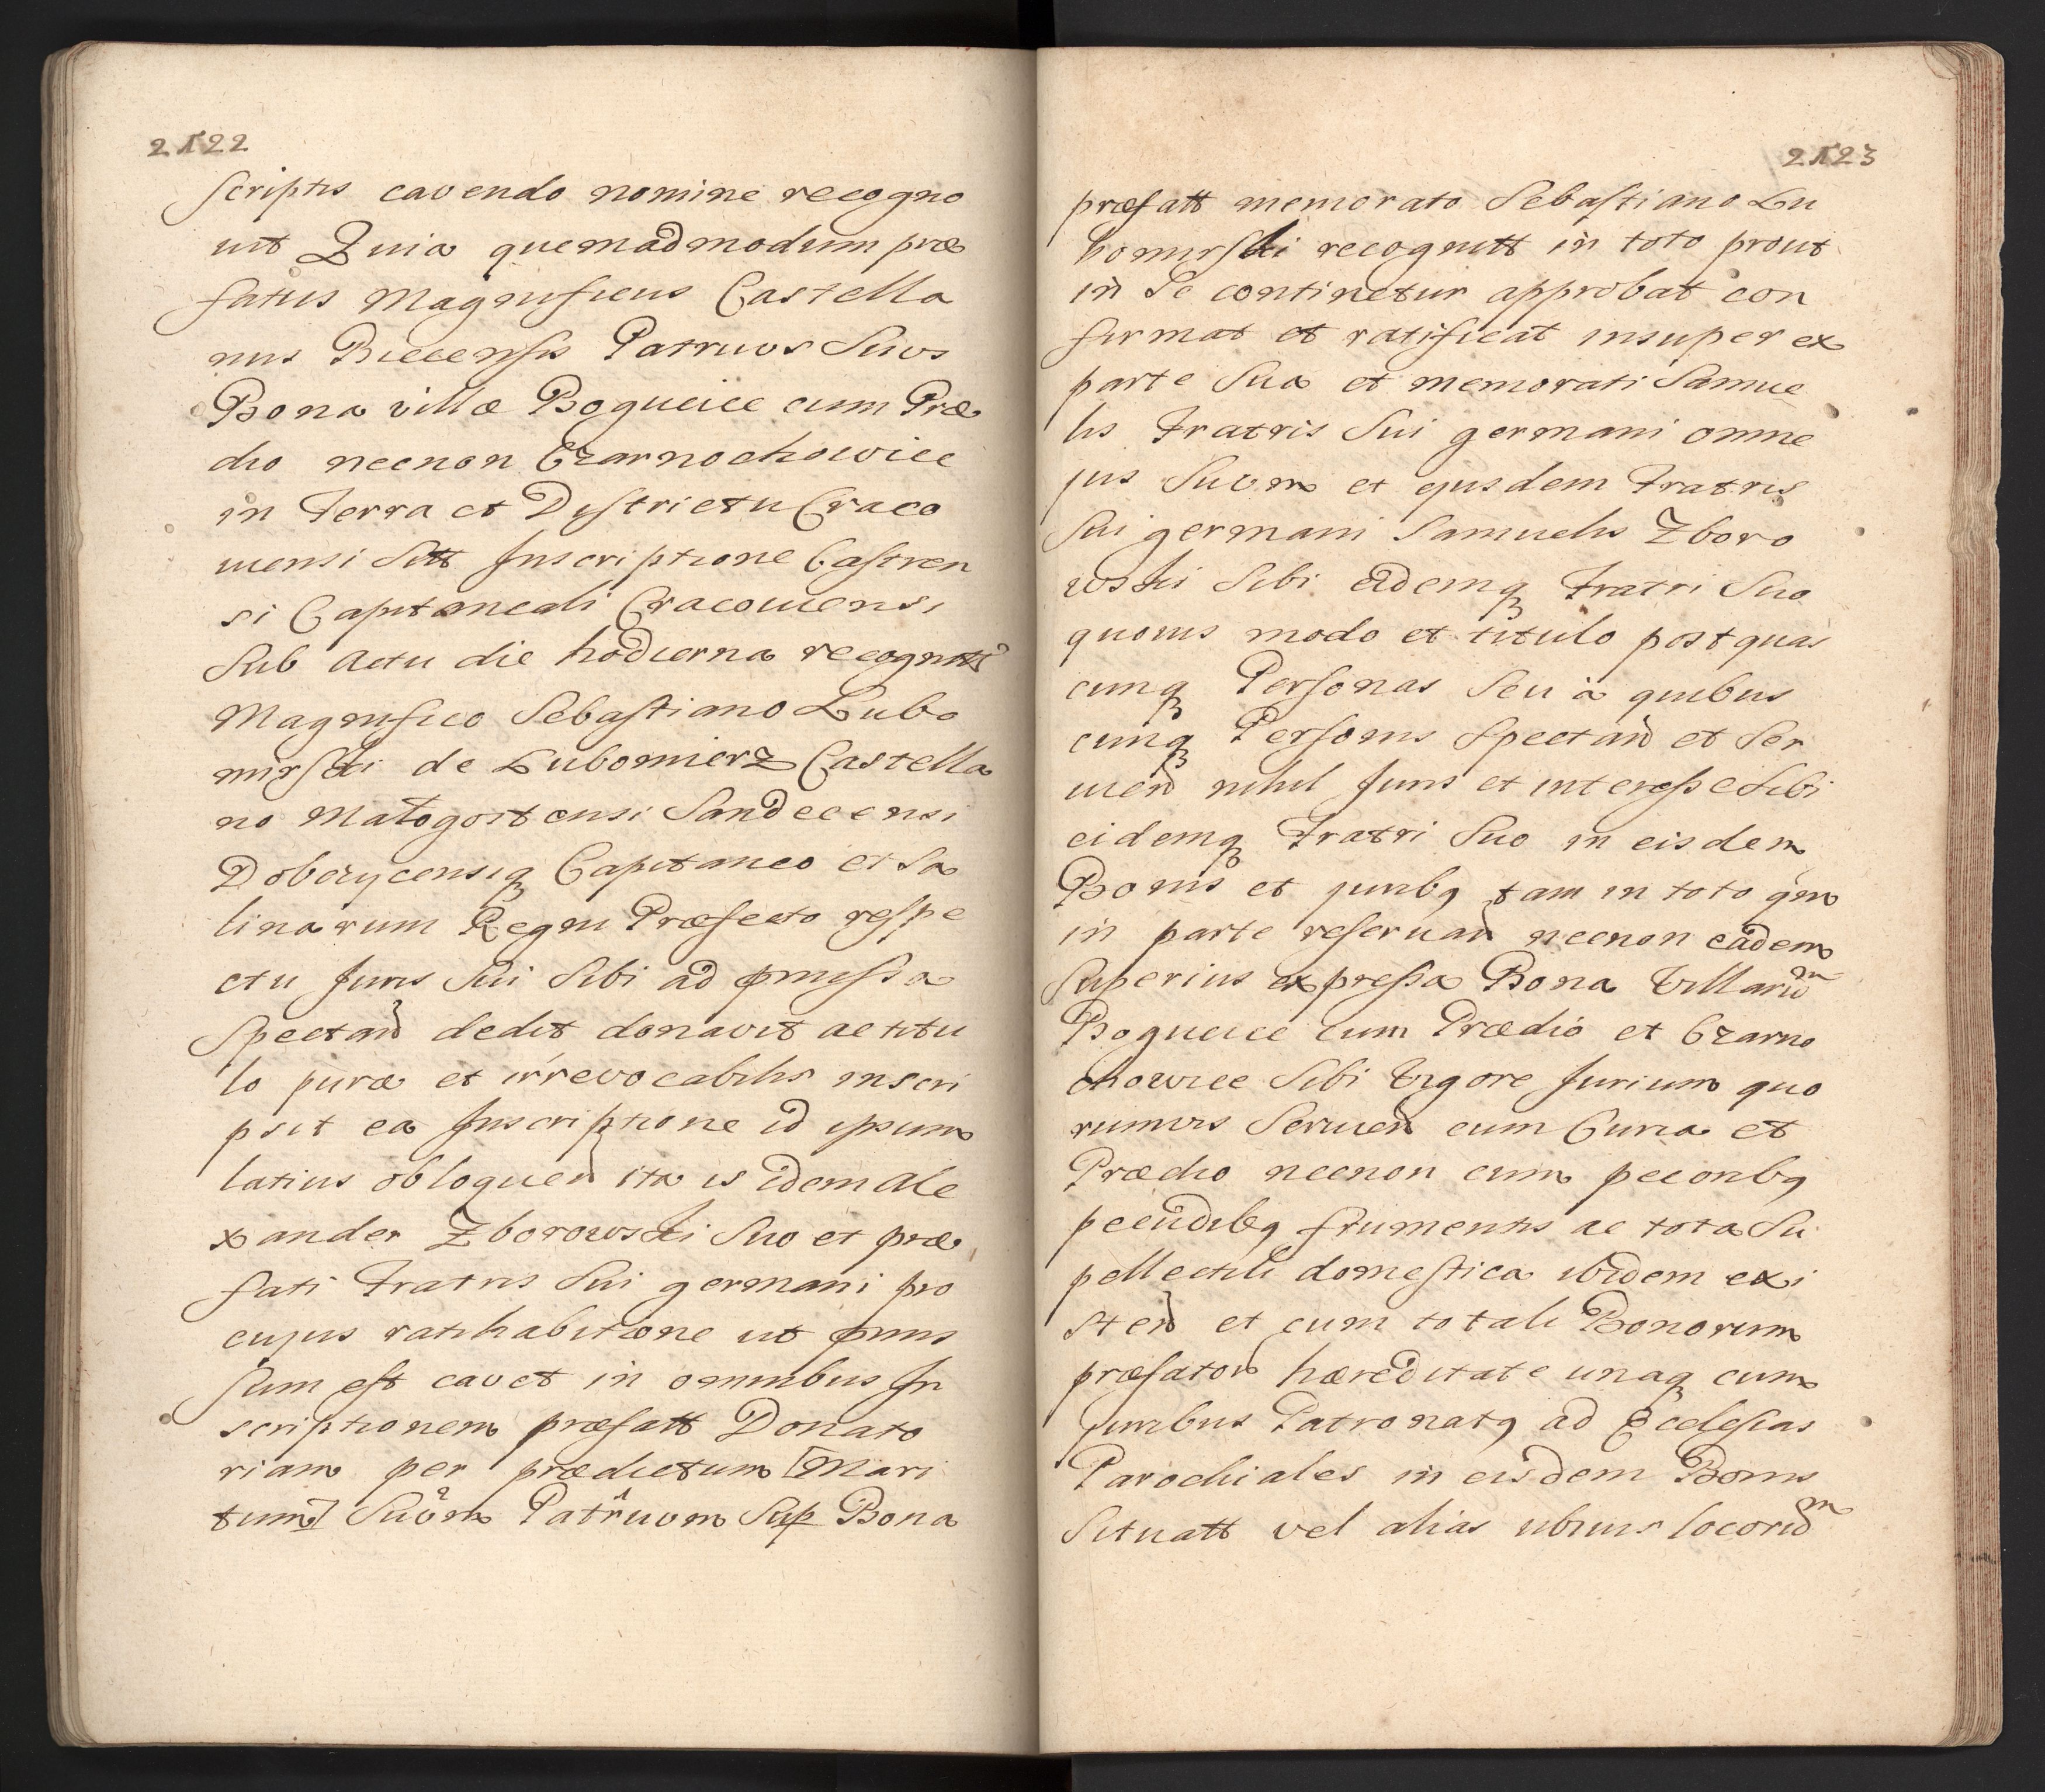 2122
scriptis cavendo nomine recogno
vit Quia quemadmodum præ
fatus Magnificus Castella
nus Biecensis Patruus Suus
Bona villæ Bogucice cum Præ
dio necnon Czarnochowice
in Terra et Districtu Craco
viensi sitt Inscriptione Castren
si Capitaneali Cracoviensi
Sub Actu die hodierna recognitt
Magnifico Sebastiano Lubo
mirski de Lubomierz Castella
no Małogostensi Sandecensi
Dobczycensiq Capitaneo et Sa
linarum Regni Præfecto respe
ctu Juris Sui Sibi ad pmissa
Spectand dedit donavit ac titu
lo puræ et irrevocabilis inscri
psit ea Inscriptione id ipsum
latius obloquen ita is idem Ale
xander Zborowski Suo et præ
fati Fratris Sui germani pro
cujus ratihabitione ut pmis
sum est cavet in omnibus In
scriptionem præfatt Donato
riam per prædictum [Mari
tum] Suum Patruum Sup Bona
2123
præfatt memorato Sebastiano Lu
bomirski recognitt in toto prout
in Se continetur approbat con
firmat et ratificat insuper ex
parte Sua et memorati Samue
lis Fratris Sui germani omne
jus Suum et ejusdem Fratris
Sui germani Samuelis Zboro
wski Sibi eidemq Fratri Suo
quovis modo et titulo post quas
cunq Personas Seu à quibus
cunq Personis Spectand et Ser
viend nihil Juris et interesse Sibi
eidemq Fratri Suo in eisdem
Bonis et juribq tam in toto qm
in parte reservand necnon eadem
Superius expressa Bona Villarum
Bogucice cum Prædio et Czarno
chowice Sibi Vigore Jurium quo
rumvis Servien cum Curia et
Prædio necnon cum pecoribq
pecudibq frumentis ac tota Su
pellectili domestica ibidem exi
sten et cum totali Bonorum
præfator hæreditate unaq cum
Juribus Patronatq ad Ecclesias
Parochiales in eisdem Bonis
Situatt vel alias ubivis locorum